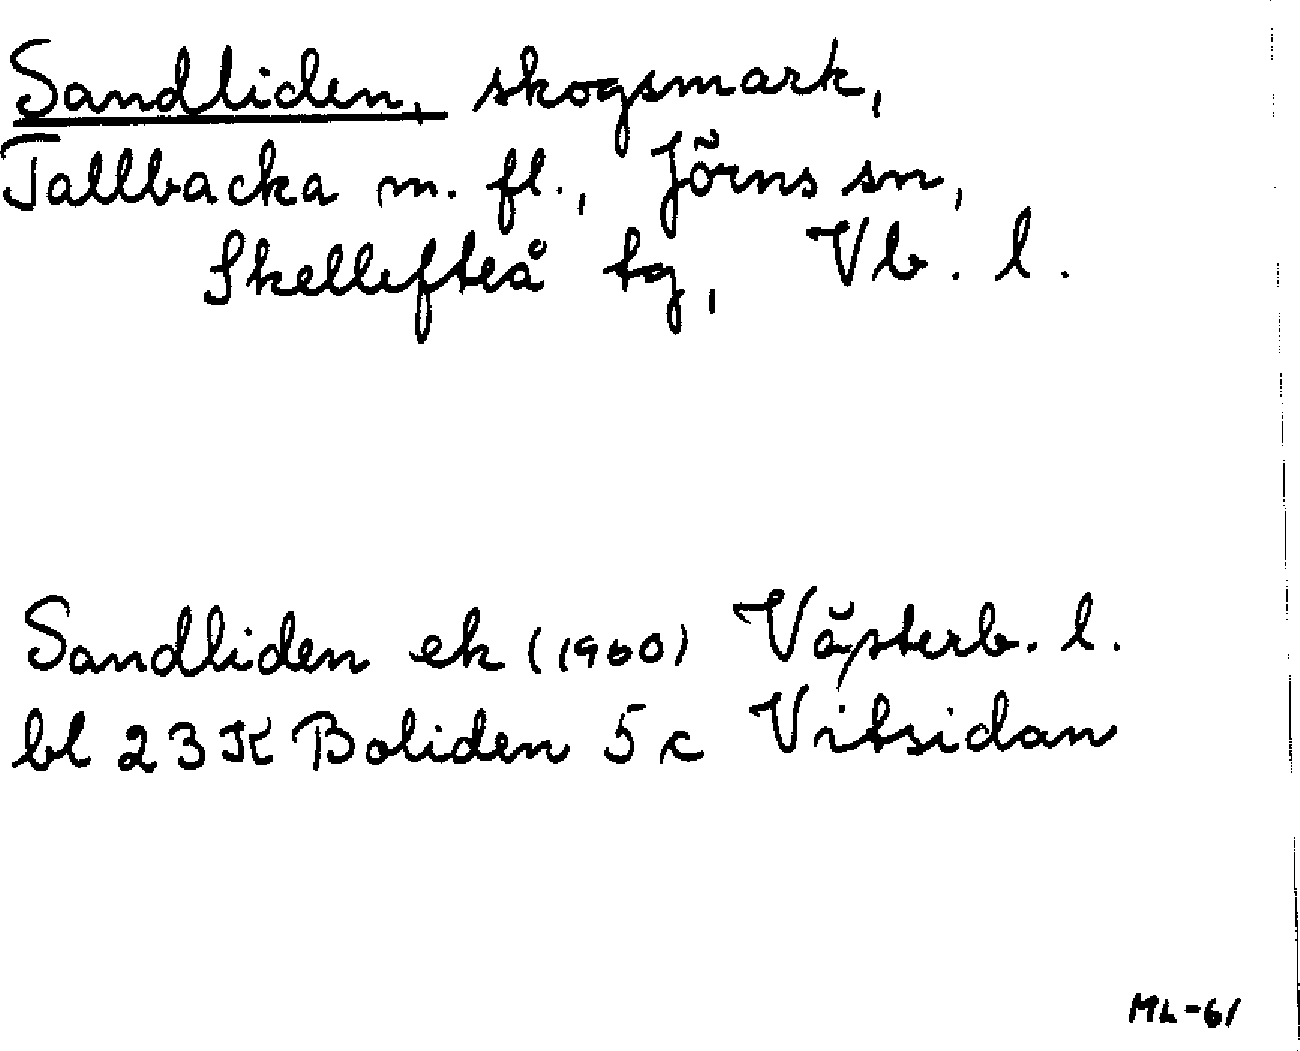 Sandliden, skogsmark,
Tallbacka m. fl., Jörns sn,
Skellefteå tg, Vb. l.
Sandliden ek (1960) Västerb. l.
bl 23 K Boliden 5 c Vitsidan
ML-61